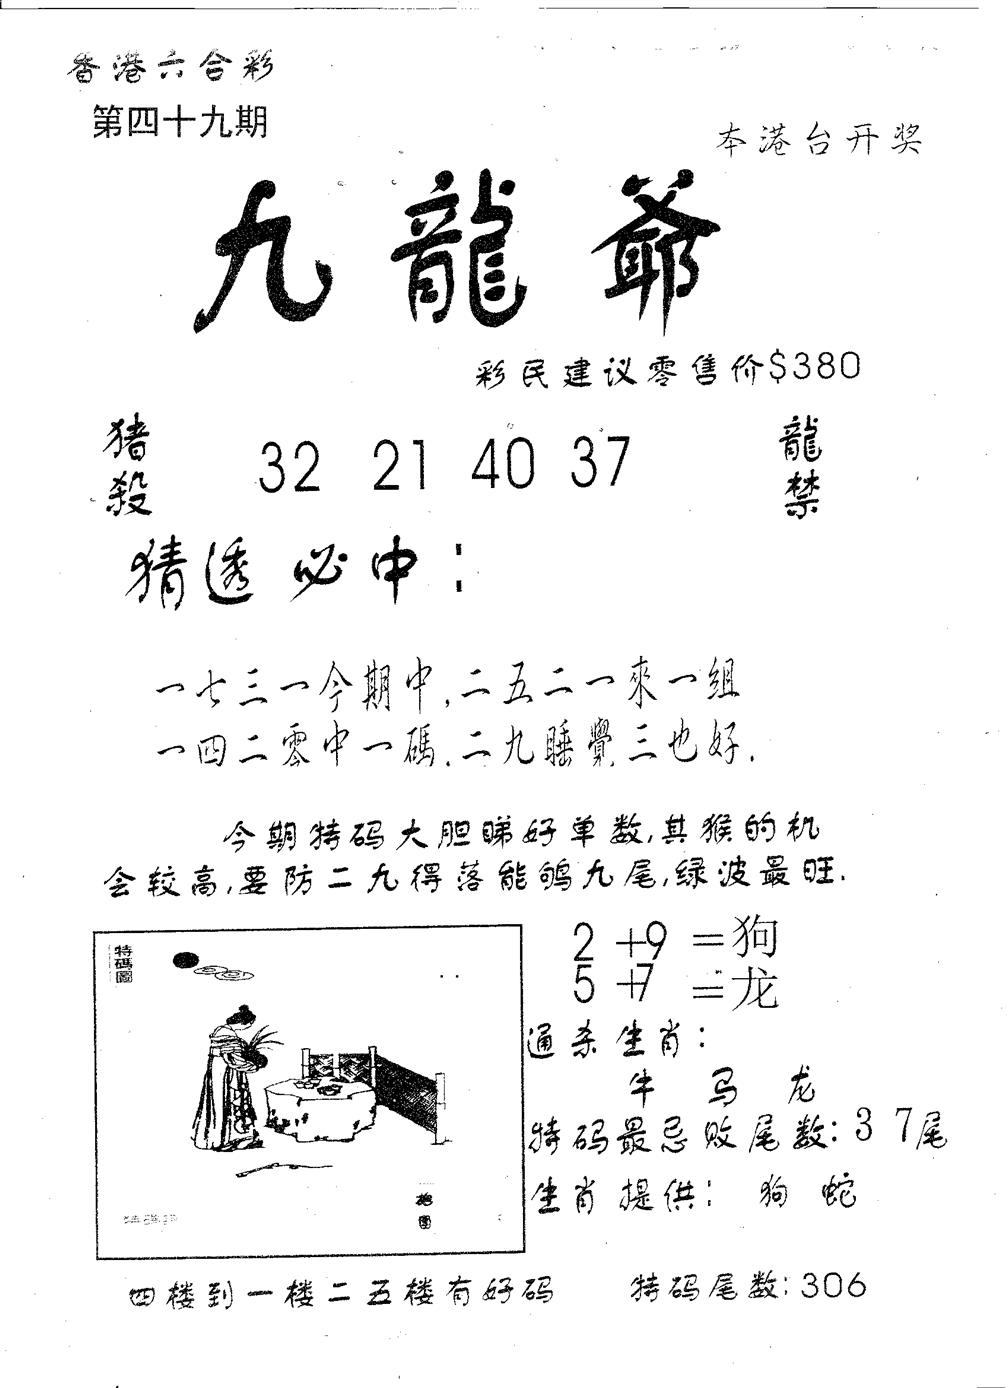 香港六合彩
第四十九期
本港台开奖
九龍爺
彩民建议零售价$380
猪殺
32 21 40 37
龍禁
猜透必中：
一七三一今期中,二五二一來一組
一四二零中一碼.二九睡覺三也好.
今期特码大胆睇好单数,其猴的机
会较高,要防二九得落能鸲九尾,绿波最旺.
特碼圖
2+9=狗
5+7=龙
通杀生肖：
牛 马 龙
特码最忌败尾数：3 7尾
生肖提供：狗 蛇
四楼到一楼二五楼有好码 特码尾数：306